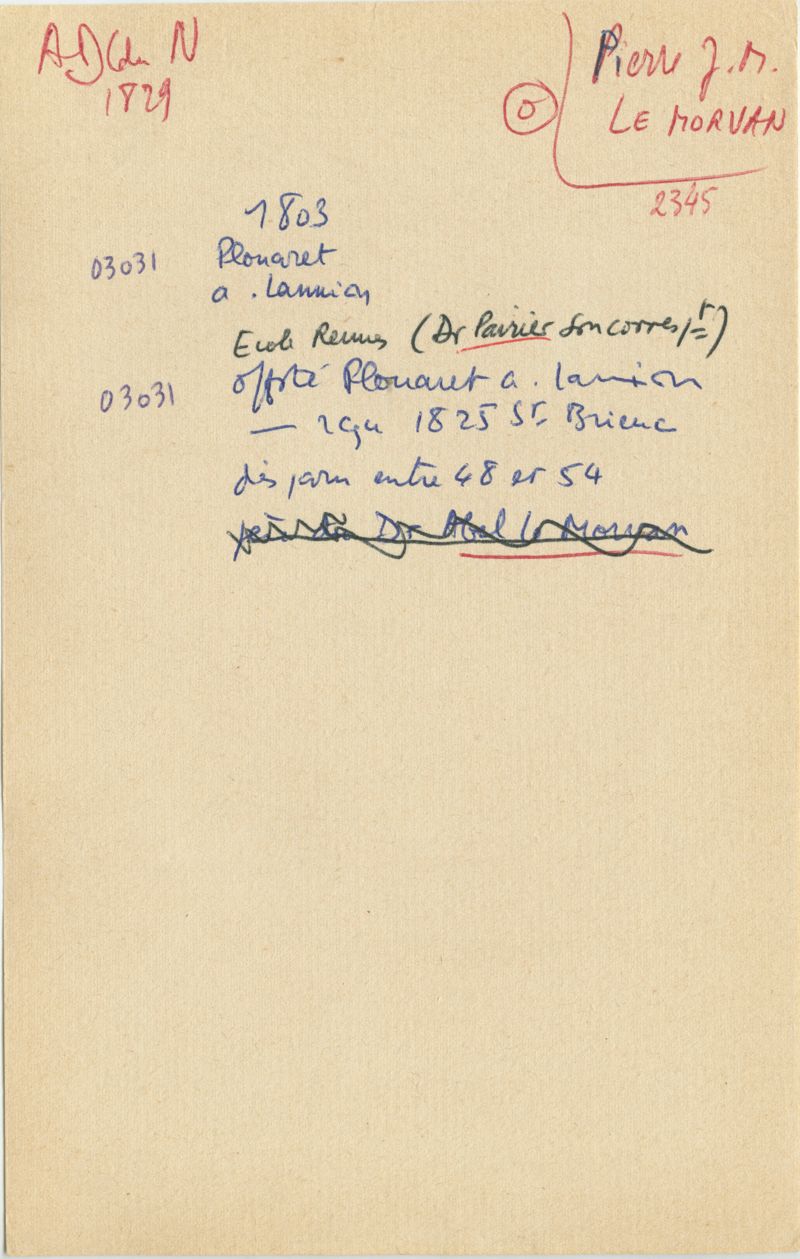 A-D C du N
1829
Pierre J. M.
O LE MORVAN
2345
1803
03031 Plouaret
a. Lannion
Ecole Rennes (Dr Poirier son correspt)
03031 off. té Plouaret a. Lannion
— reçu 1825 St. Brieuc
entre 48 et 54
Dr Abel Le Morvan